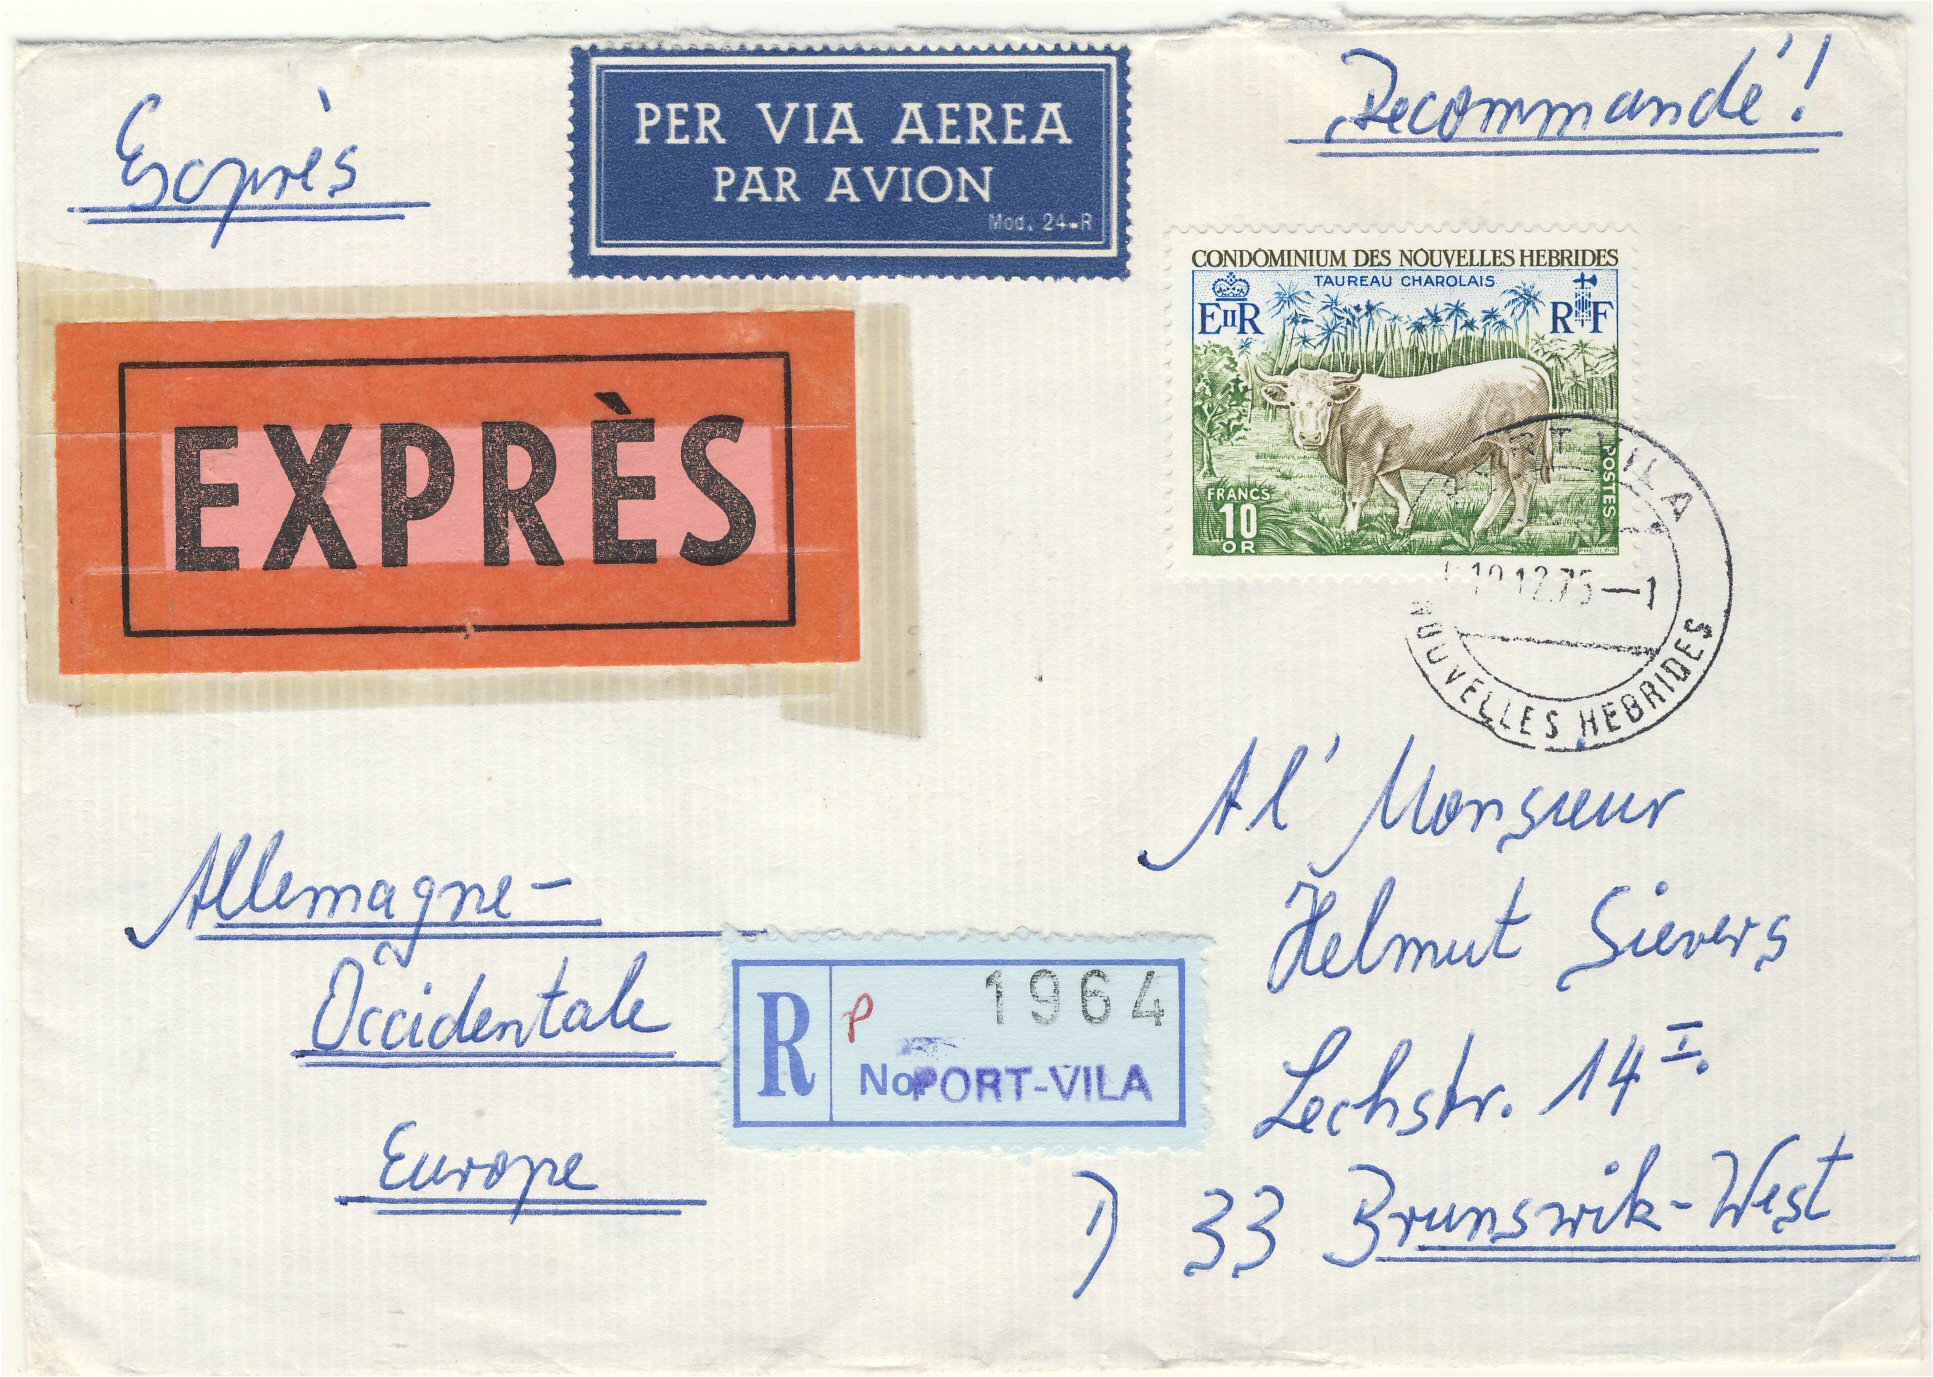 Exprès
PER VIA AEREA
PAR AVION
Mod. 24-R
Recommandé!
CONDOMINIUM DES NOUVELLES HEBRIDES
TAUREAU CHAROLAIS
EIIR
RF
FRANCS
10
OR
POSTES
PHEULPIN
EXPRÈS
PORT VILA
12.75—1
NOUVELLES HEBRIDES
A l' Monsieur
Helmut Sievers
Lechstr. 14 I.
D 33 Brunswik-West
Allemagne-
Occidentale
Europe
R
P
1964
No
PORT-VILA